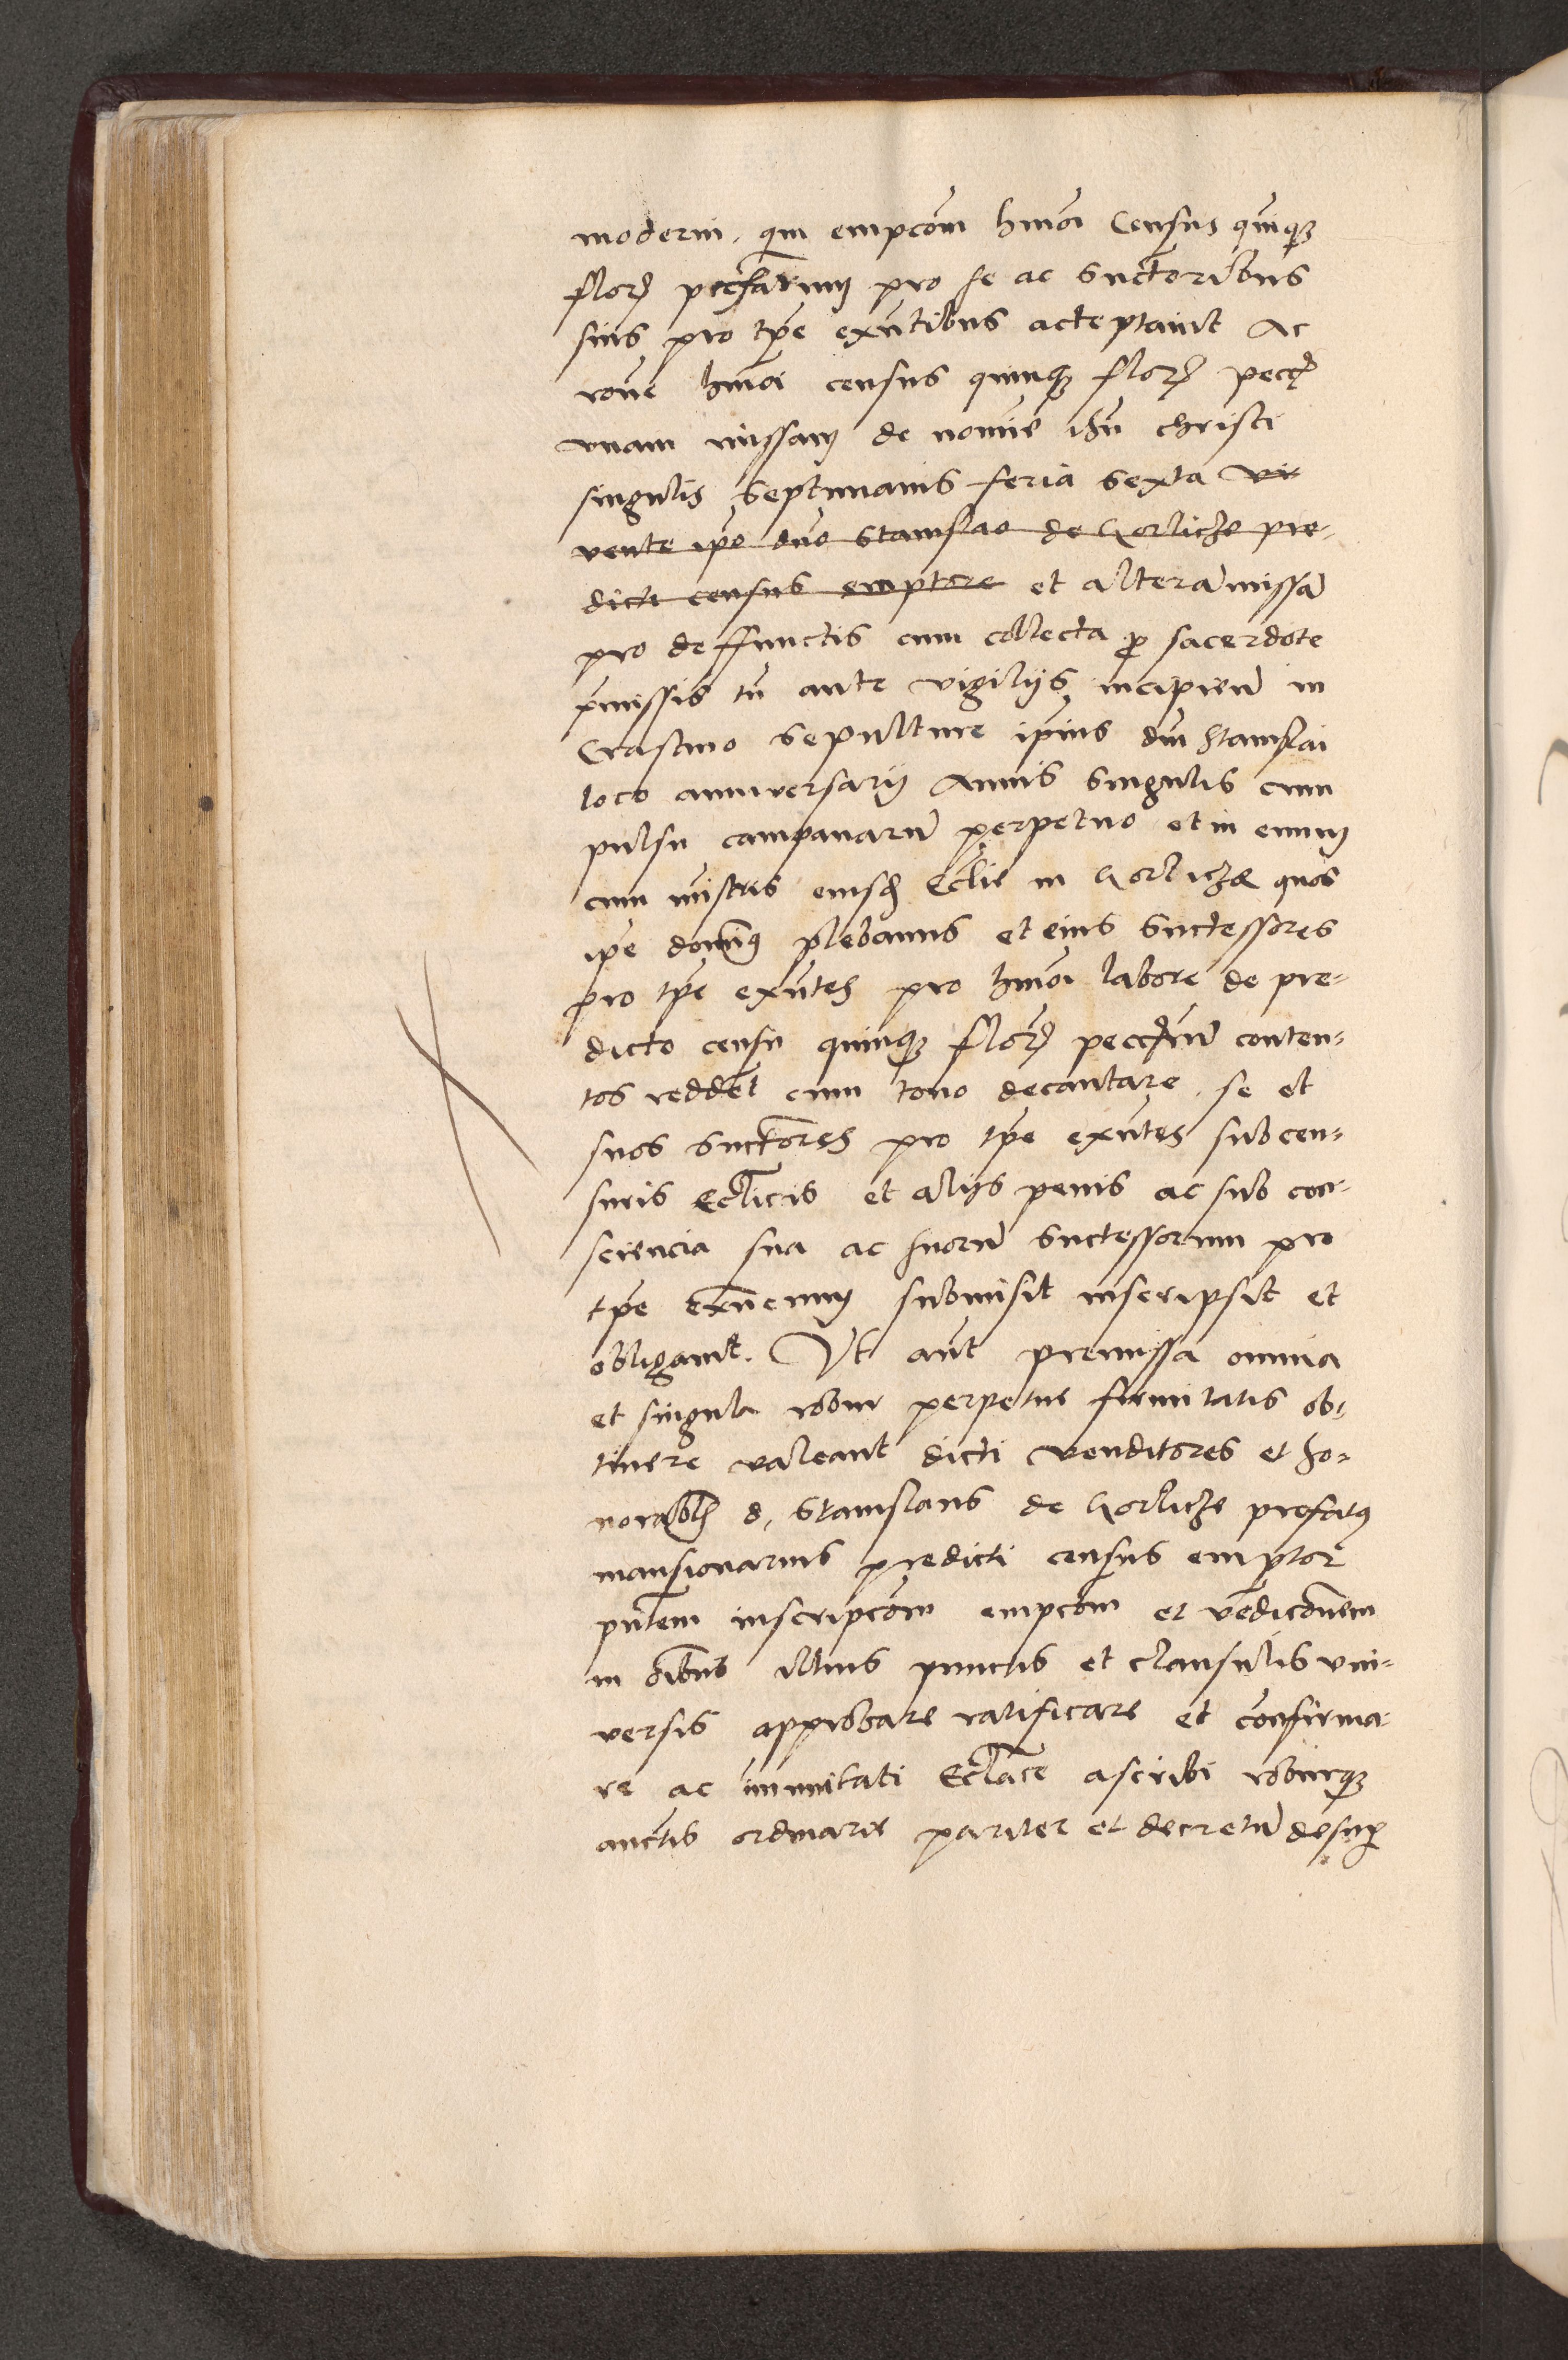 moderni. qui empcom hmoi Census quinqz
flor pecfatum pro se ac Suctoribus
suis pro tpe exntibus acceptauit Ac
rone hmoi census quinqz flor pecc
vnam missam de nomine ihu christi
singulis Septimanis feria sexta vi-
vente ipo dno Stanislao de Gorlicze pre-
dicti census emptore et altera missa
pro deffunctis cum collecta p sacerdote
pmissis tn ante vigilijs incipien in
Crastino Sepulture ipius dni Stanislai
loco anniversarij Annis Singulis cum
pulsu campanaru perpetuo et in euum
cum mistris eiusd Eclie in Gorlicze quos
ipe dominus plebanus et eius Suctessores
pro tpe exntes pro hmoi labore de pre-
dicto censu quinqz flor contem-
tos reddet cum tono decantare. se et
suos Suctores pro tpe exntes sub cen-
suris Eclicis et alijs penis ac sub con-
sciencia sua ac suoru Suctessorum pro
tpe submisit inscripsit et
obligauit. Vt aut premissa omnia
et singula robur perpetue firmitatis ob-
tinere valeant dicti venditores et ho-
norablis d. Stanislaus de Gorlicze prefatus
mansionarius predicti census emptor
pntem inscripcom empcom et vedicionem
in oibus illius punctis et clausulis vni-
versis approbare ratificare et confirma-
re ac immitati Eclace ascribi roburqz
auctis ordinarie pariter et decretu desup